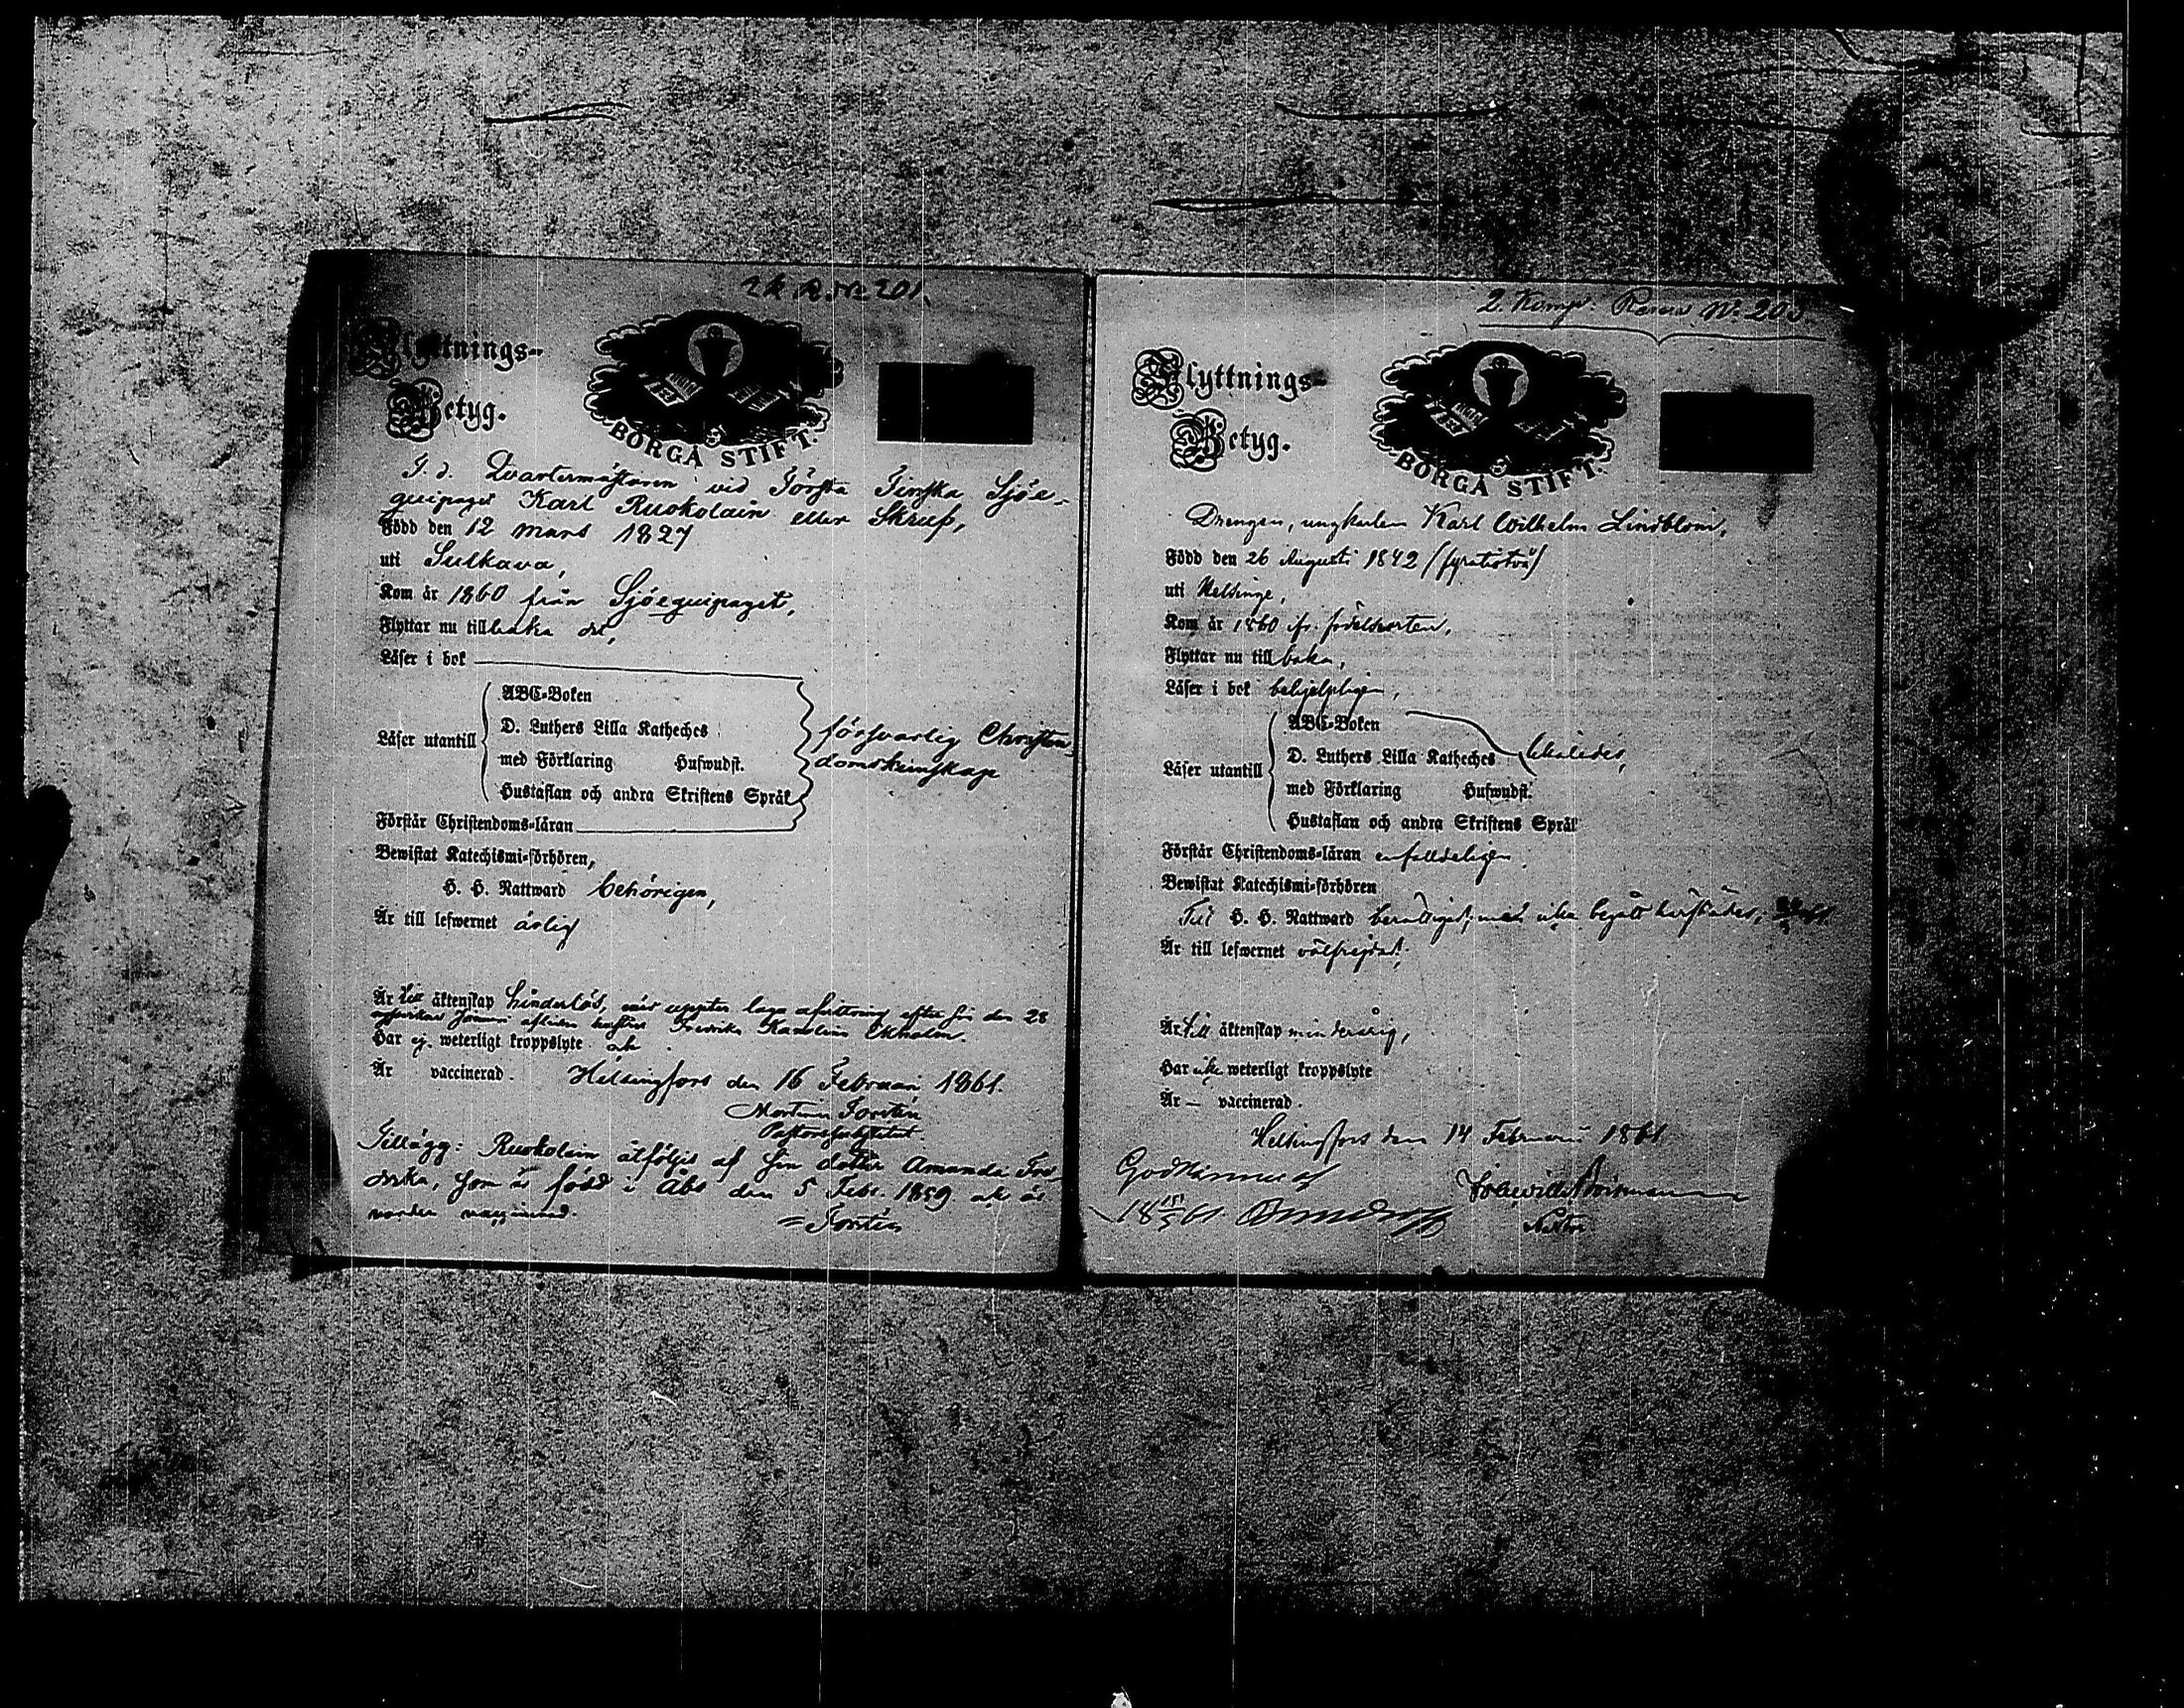 2 K. R. No 201.
Flyttnings-
Betyg.
BORGÅ STIFT.
F. d. Qvartermästaren vid Första Finska Sjöe-
quipaget Karl Ruokolain eller Skruf,
Född den 12 Mars 1827
uti Sulkava,
Kom år 1860 från Sjöequipaget,
Flyttar nu tillbaka dit,
Läser i bok
Läser utantill
ABC-Boken
D. Luthers Lilla Katheches
med Förklaring Hufwudst.
Hustaflan och andra Skriftens Språk
försvarlig Christen-
domskunskap
Förstår Christendoms-läran
Bewistat Katechismi-förhören,
H. H. Nattward behörigen,
Är till lefwernet ärlig
Är till äktenskap hinderlös, när uppter laga afvittring efter sin den 28
afliden hustru Fredrika Karolina Ekholm.
Har ej weterligt kroppslyte och
Är vaccinerad. Helsingfors den 16 Februari 1861.
Martin Forstén
Pastorssubstitut.
Tillägg: Ruokolain åtföljes af sin dotter Amanda Fred-
rika, som är född i Åbo den 5 Febr. 1859 och är
vorden vaccinerad.
= Forstén
2. Komp. Rec. No. 203.
Flyttnings-
Betyg.
BORGÅ STIFT.
Drengen, ungkarlen Karl Wilhelm Lindblom,
Född den 26 Augusti 1842 (fyratiotvå)
uti Helsinge,
Kom år 1860 ifr. födelseorten,
Flyttar nu tillbaka,
Läser i bok behjelpligen,
Läser utantill
ABC-Boken
D. Luthers Lilla Katheches likaledes,
med Förklaring Hufwudst.
Hustaflan och andra Skriftens Språk
Förstår Christendoms-läran enfalldeligen,
Bewistat Katechismi-förhören
Till H. H. Nattward berättigad; men icke begått härstädes,
Är till lefwernet välfrejdad;
Är till äktenskap minderårig,
Har icke weterligt kroppslyte
Är — vaccinerad.
Helsingfors den 14 Februari 1861
Godkännes
18 15/5 61.
Rektor